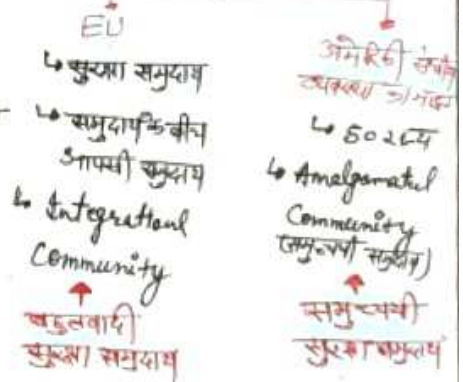 EU
↳ सुरक्षा समुदाय
↳ समुदाय के बीच
आपसी समुदाय
↳ Integrational
Community
बहुलवादी
सुरक्षा समुदाय
अमेरिकी संघीय
व्यवस्था का मॉडल
↳ 50 राज्य
↳ Amalgamated
Community
(समुच्चयी समुदाय)
समुच्चयी
सुरक्षा समुदाय